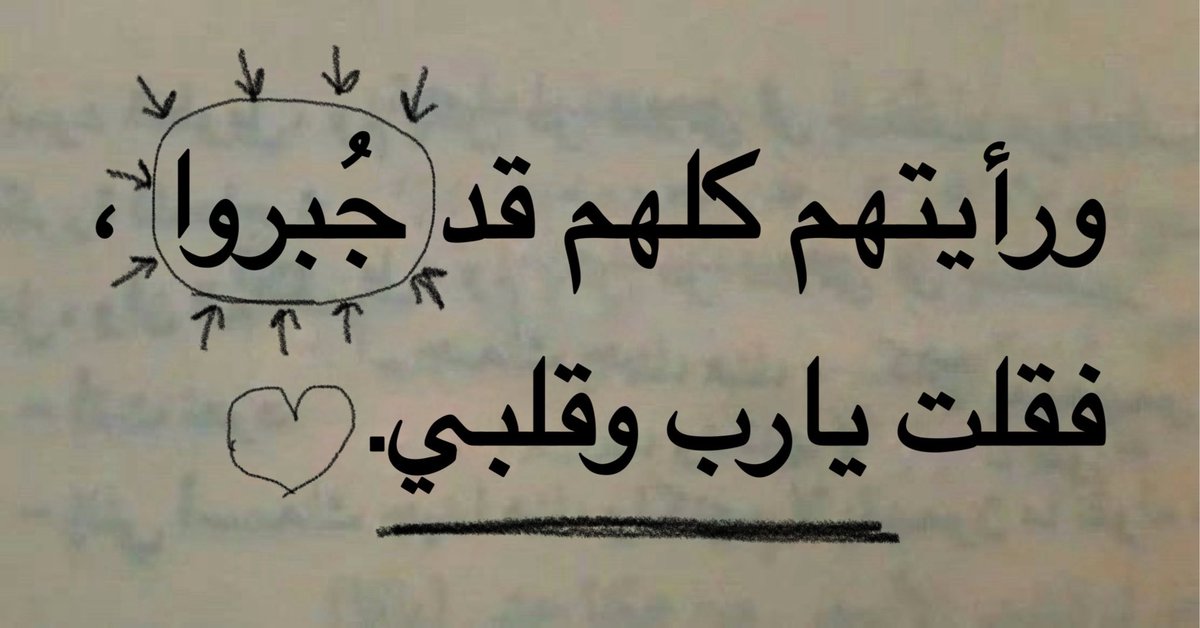 ورأيتهم كلهم قد جُبروا ،
فقلت يارب وقلبي.